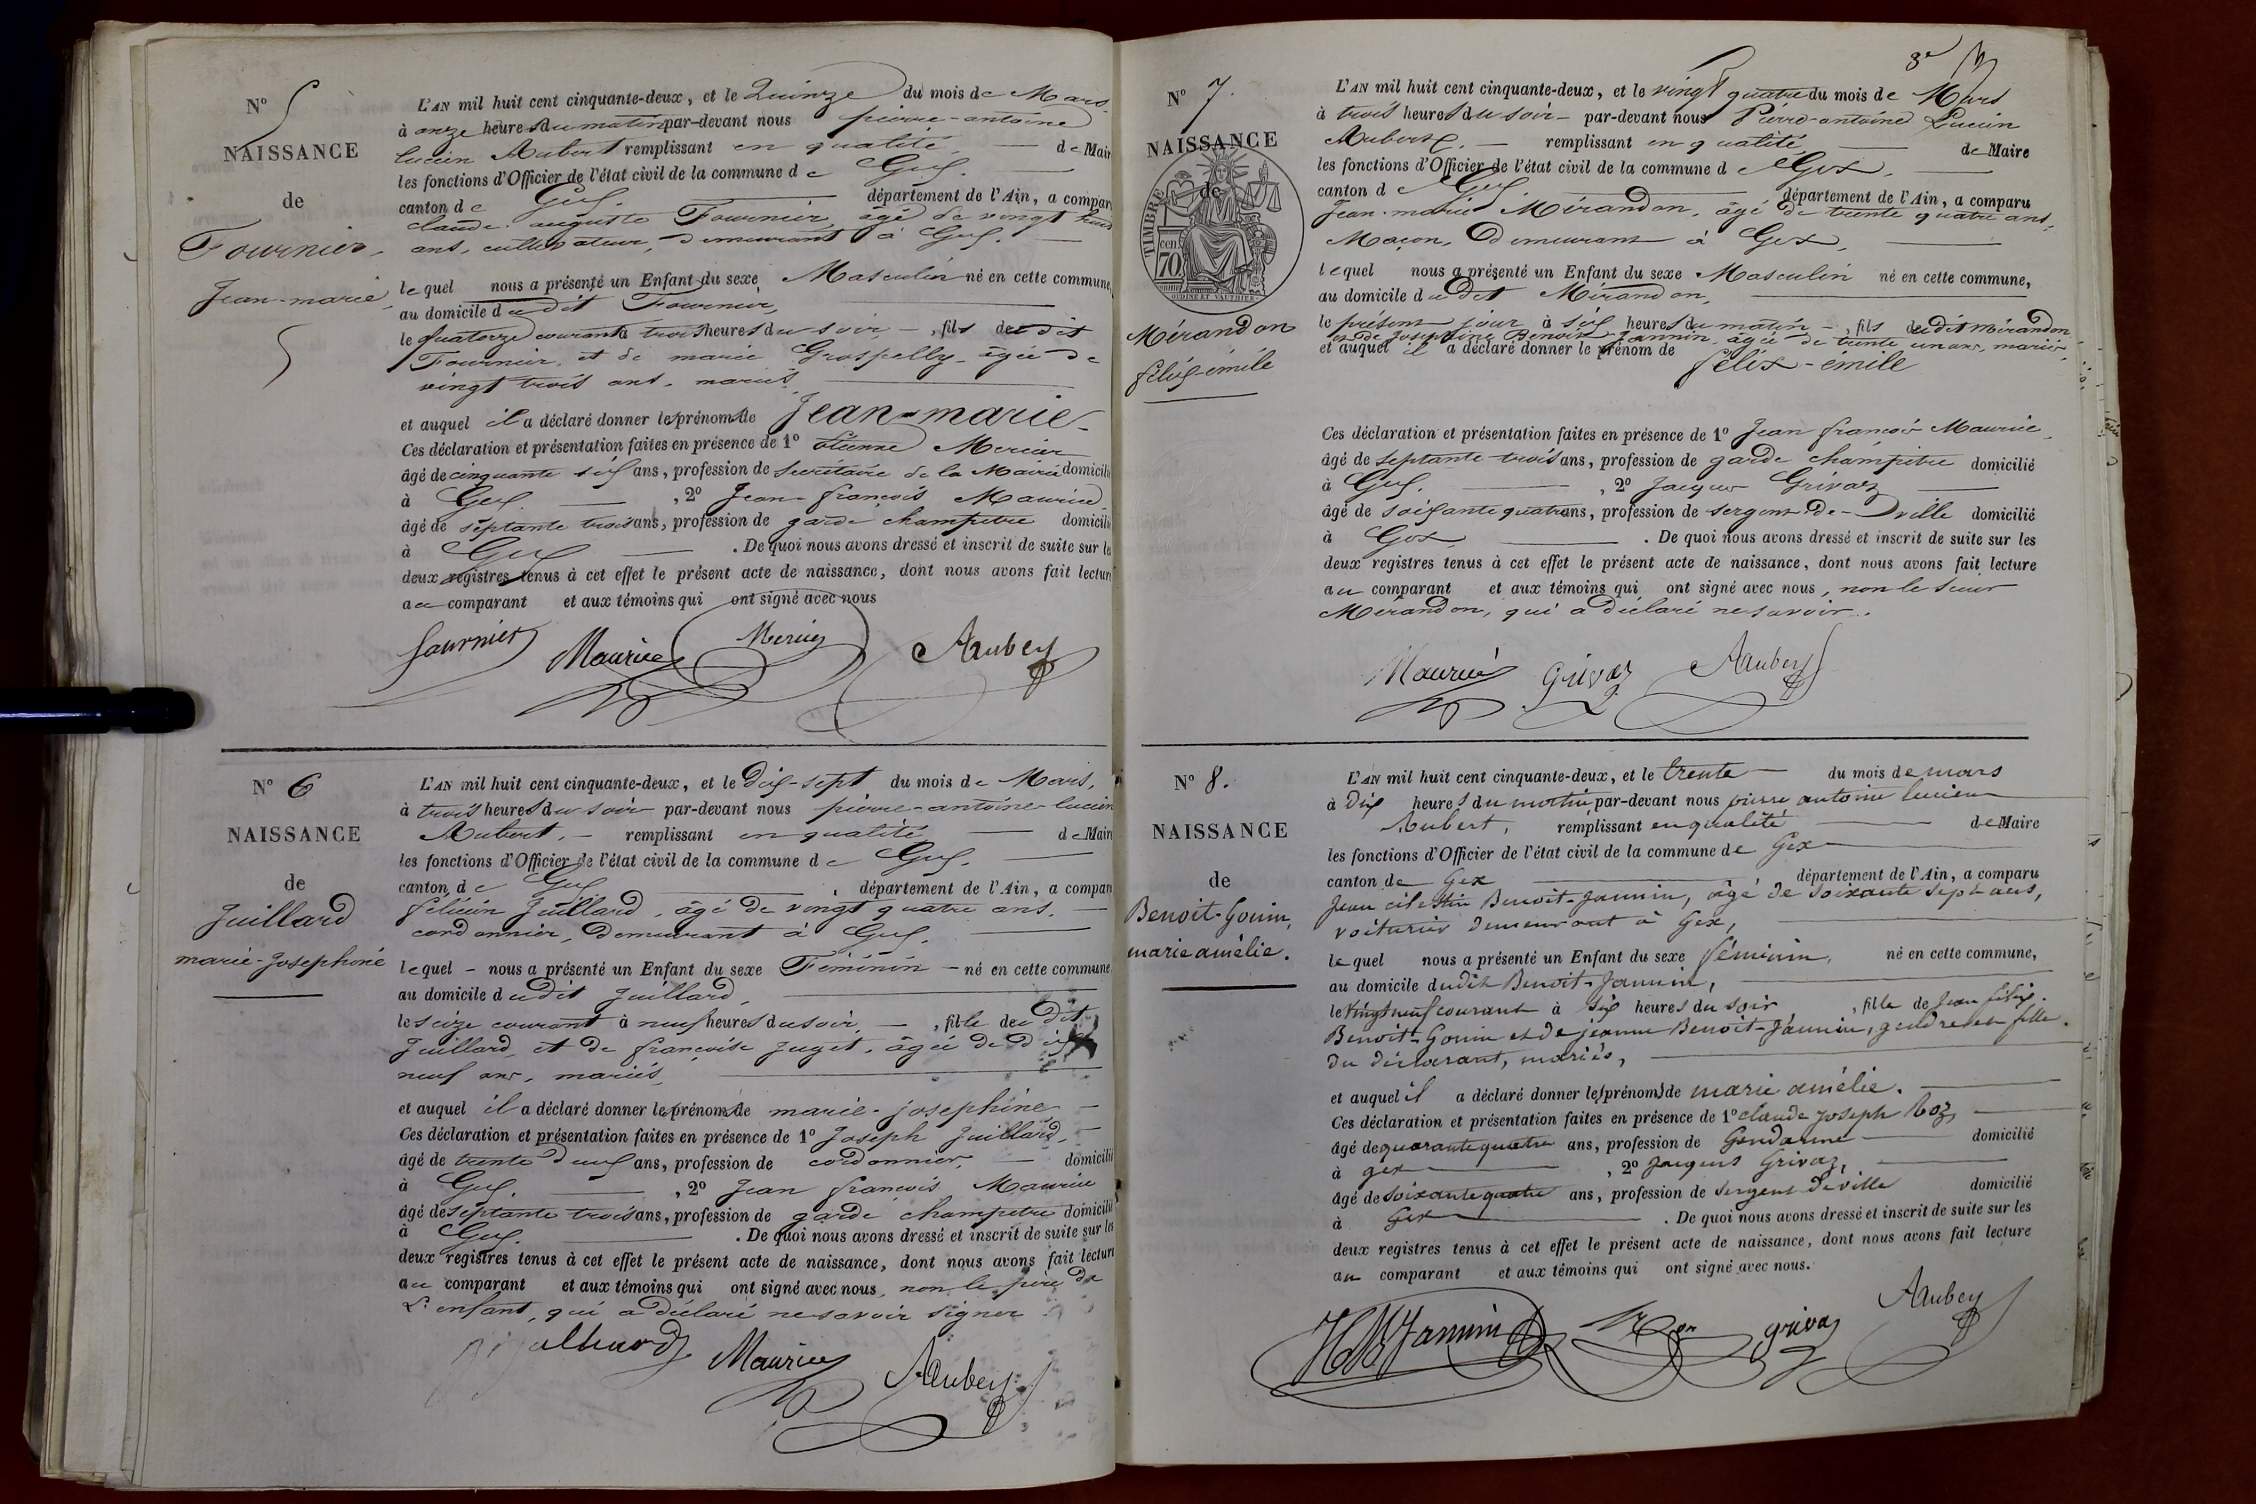 N° 5
NAISSANCE
de
Fournier,
Jean-marie
L'AN mil huit cent cinquante-deux, et le Quinze du mois de Mars
à onze heures du matin par-devant nous pierre-antoine
lucien Aubert remplissant en qualité de Mair
les fonctions d'Officier de l'état civil de la commune de Gex.
canton de Gex. département de l'Ain, a compar
claude auguste Fournier, âgé de vingt huit
ans, cultivateur, demeurant à Gex.
lequel nous a présenté un Enfant du sexe Masculin né en cette commune,
au domicile dudit Fournier,
le quatorze courant à trois heures du soir, fils dudit
Fournier, et de marie Grospelly, âgée de
vingt trois ans, mariés,
et auquel il a déclaré donner les prénoms de Jean-marie
Ces déclaration et présentation faites en présence de 1° étienne Mercier
âgé de cinquante six ans, profession de secrétaire de la Mairie domicilié
à Gex. , 2° Jean-françois Maurice
âgé de septante trois ans, profession de garde champetre domicilié
à Gex . De quoi nous avons dressé et inscrit de suite sur les
deux registres tenus à cet effet le présent acte de naissance, dont nous avons fait lecture
au comparant et aux témoins qui ont signé avec nous
fournier Maurice Mercier Aubert
N° 6
NAISSANCE
de
Juillard
marie-Josephine
L'AN mil huit cent cinquante-deux, et le Dix-sept du mois de Mars,
à trois heures du soir par-devant nous pierre-antoine-lucien
Aubert, remplissant en qualité de Maire
les fonctions d'Officier de l'état civil de la commune de Gex.
canton de Gex département de l'Ain, a comparu
félicien Juillard, âgé de vingt quatre ans,
cordonnier, demeurant à Gex.
lequel nous a présenté un Enfant du sexe Féminin né en cette commune,
au domicile dudit Juillard,
le seize courant à neuf heures du soir, fille dudit
Juillard, et de françoise Juget, âgée de dix
neuf ans, mariés,
et auquel il a déclaré donner les prénoms de marie-josephine
Ces déclaration et présentation faites en présence de 1° Joseph Juillard,
âgé de trente deux ans, profession de cordonnier, domicilié
à Gex. , 2° Jean françois Maurice
âgé de septante trois ans, profession de garde champetre domicilié
à Gex. . De quoi nous avons dressé et inscrit de suite sur les
deux registres tenus à cet effet le présent acte de naissance, dont nous avons fait lecture
au comparant et aux témoins qui ont signé avec nous, non le père de
L'enfant, qui a déclaré ne savoir signer
Maurice Aubert
3e
N° 7.
NAISSANCE
de
TIMBRE
cen. 70
Mérandon
félix-émile
L'AN mil huit cent cinquante-deux, et le vingt quatre du mois de Mars
à trois heures du soir par-devant nous Pierre-antoine Lucien
Aubert, remplissant en qualité de Maire
les fonctions d'Officier de l'état civil de la commune de Gex,
canton de Gex. département de l'Ain, a comparu
Jean-marie Mérandon, âgé de trente quatre ans,
Maçon, demeurant à Gex,
lequel nous a présenté un Enfant du sexe Masculin né en cette commune,
au domicile dudit Mérandon,
le présent jour à six heures du matin, fils dudit Mérandon
et de Josephine Benoit Jannin, âgée de trente un ans, mariés,
et auquel il a déclaré donner le prénom de
félix-émile
Ces déclaration et présentation faites en présence de 1° Jean françois Maurice,
âgé de septante trois ans, profession de garde champetre domicilié
à Gex. , 2° Jacques Grivaz
âgé de soixante quatre ans, profession de sergent-de-ville domicilié
à Gex, . De quoi nous avons dressé et inscrit de suite sur les
deux registres tenus à cet effet le présent acte de naissance, dont nous avons fait lecture
au comparant et aux témoins qui ont signé avec nous, non le sieur
Mérandon, qui a déclaré ne savoir.
Maurice Grivaz Aubert
N° 8.
NAISSANCE
de
Benoit-Gonin,
marie amélie.
L'AN mil huit cent cinquante-deux, et le trente du mois de mars
à dix heures du matin par-devant nous pierre antoine lucien
Aubert, remplissant en qualité de Maire
les fonctions d'Officier de l'état civil de la commune de Gex
canton de Gex département de l'Ain, a comparu
Jean célestin Benoit-Jannin, âgé de soixante sept ans,
voiturier demeurant à Gex,
lequel nous a présenté un Enfant du sexe féminin, né en cette commune,
au domicile dudit Benoit-Jannin,
le vingt neuf courant à six heures du soir, fille de Jean félix
Benoit-Gonin et de jeanne Benoit-Jannin, gendre et fille
du déclarant, mariés,
et auquel il a déclaré donner les prénoms de marie amélie.
Ces déclaration et présentation faites en présence de 1° claude joseph Roz,
âgé de quarante quatre ans, profession de Gendarme domicilié
à gex , 2° Jacques Grivaz,
âgé de soixante quatre ans, profession de sergent de ville domicilié
à Gex . De quoi nous avons dressé et inscrit de suite sur les
deux registres tenus à cet effet le présent acte de naissance, dont nous avons fait lecture
au comparant et aux témoins qui ont signé avec nous.
Jannin grivaz Aubert